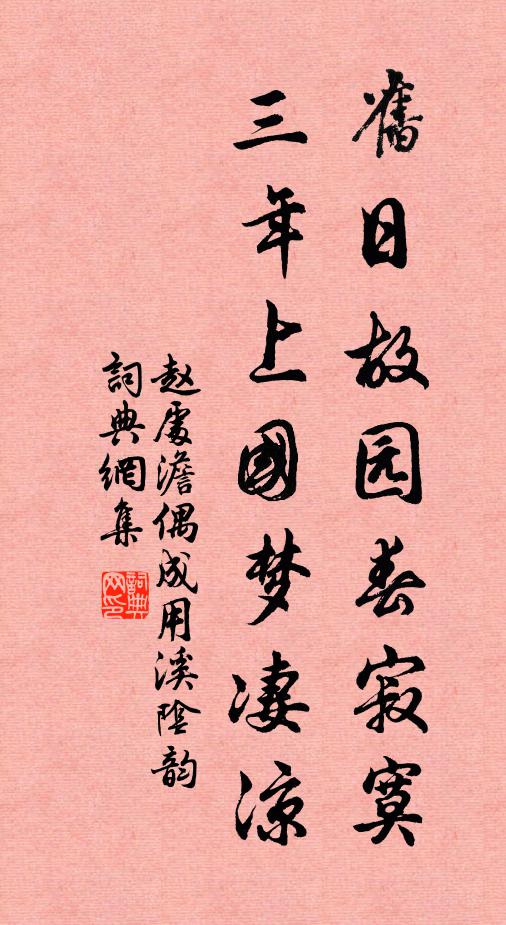 舊日故园春寂寞
三年上國梦凄涼
赵處澹偶成用溪陰韵
詞典網集
詞典网印